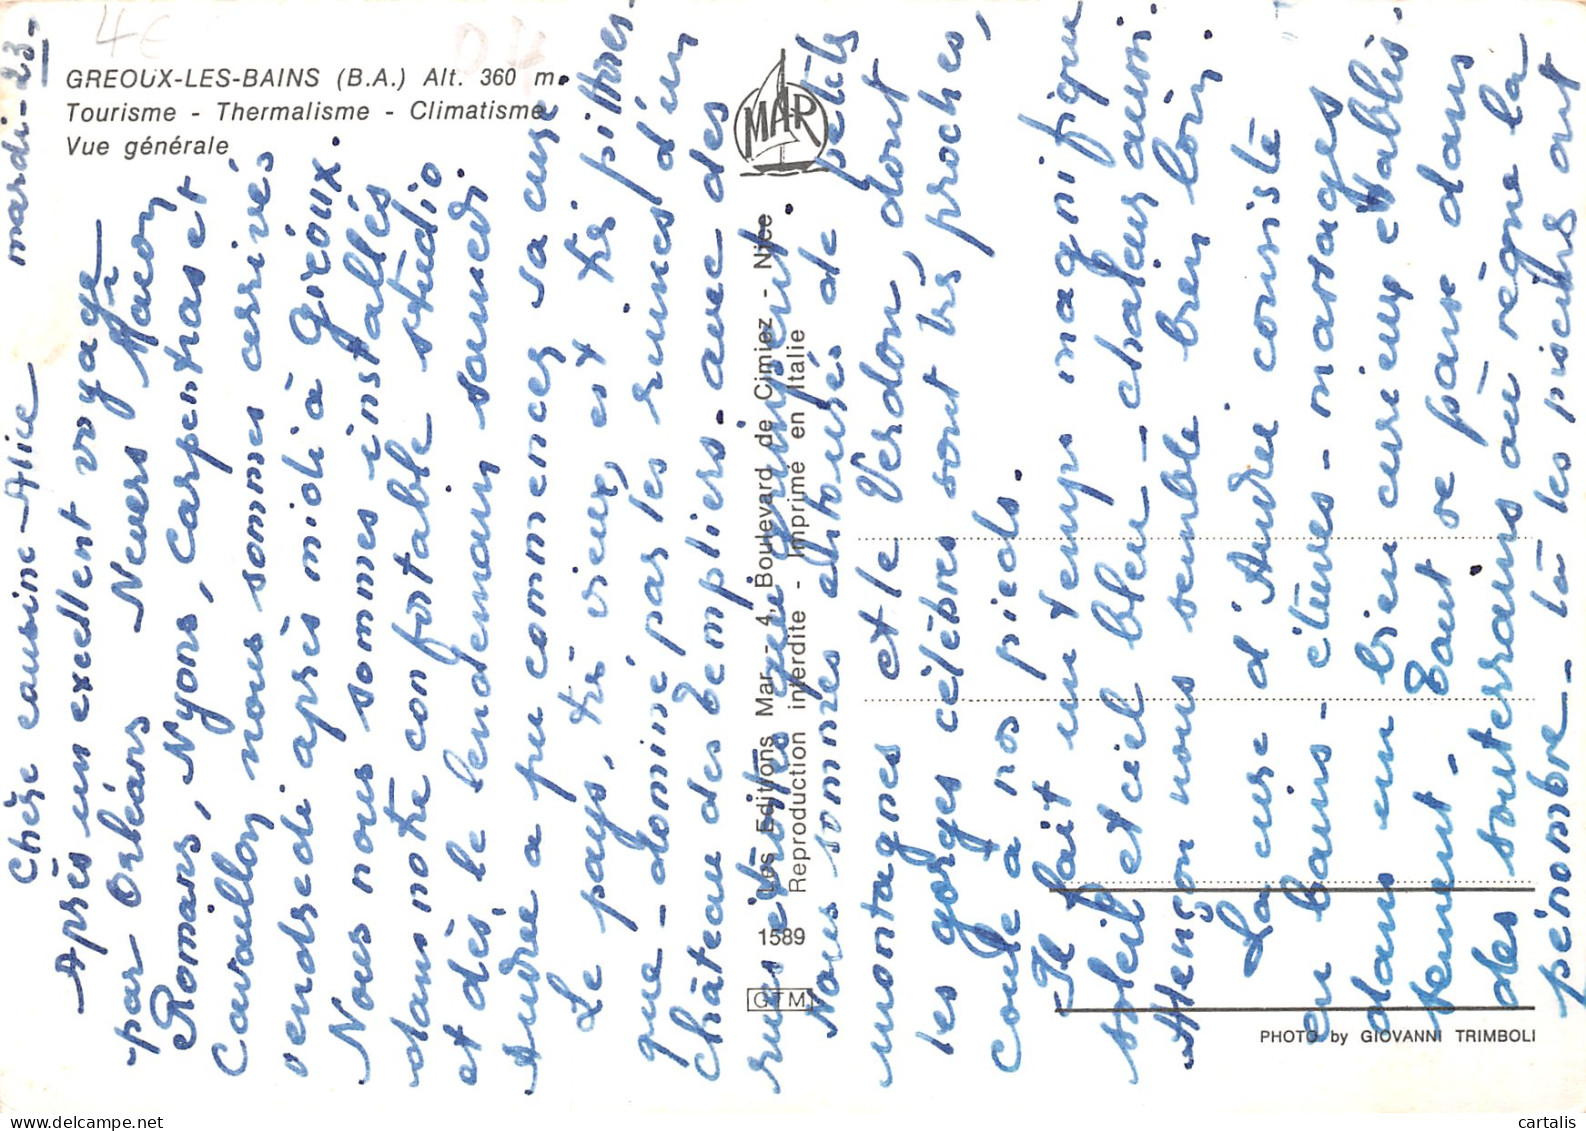 4€
GREOUX-LES-BAINS (B.A.) Alt. 360 m.
Tourisme - Thermalisme - Climatisme
Vue générale
MAR
1589 Les Editions Mar - 4, Boulevard de Cimiez - Nice
Reproduction interdite - Imprimé en Italie
PHOTO by GIOVANNI TRIMBOLI
mardi-23-
Chère cousine-Alice
Après un excellent voyage
par Orléans Nevers Macon
Romans, Nyons, Carpentras et
Cavaillon nous sommes arrivés
vendredi après midi à Gréoux.
Nous nous sommes installés
dans notre confortable studio
et dès, le lendemain samedi
Andrée a pu commencer sa cure
Le pays, très vieux, est très pittores-
que - dominé par les ruines d'un
Château des Templiers. avec des
rues étroites qui grimpent.
Nous sommes entourés de petits
montagnes et le Verdon, dont
les gorges célèbres sont très proches,
coule à nos pieds.
Il fait un temps magnifique
soleil et ciel bleu - chaleur aussi.
Alençon nous semble bien loin.
La cure d'Andrée consiste
en bains - étuves - massages
dans un bien curieux établis-
sement. Tout se passe dans
des souterrains où règne la
pénombre - là les piscines ont
cartalis